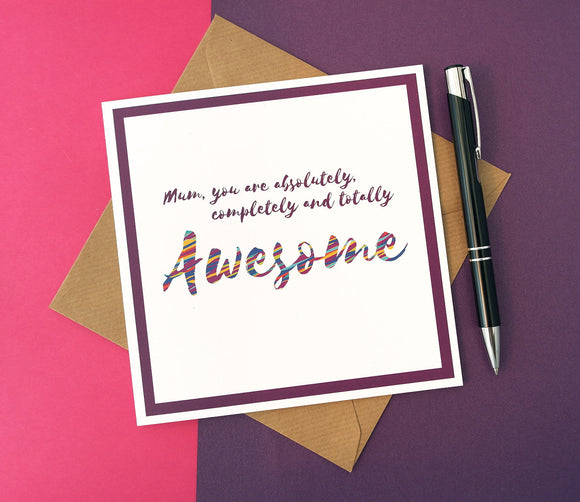 Mum, you are absolutely,
completely and totally
Awesome